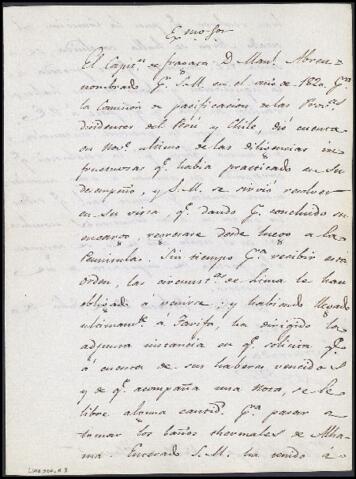 Exmo Sor
El Capn. de fragata D. Manl. Abreu
nombrado pr. S.M. en el año de 1820 pa.
la Comision de pacificacion de las Provs.
disidentes del Perú y Chile, dió cuenta
en Nove. ultimo de las diligencias in
fructuosas qe. habia practicado en su
desempeño, y S.M. se sirvió resolver
en su vista, qe. dando pr. concluido su
encargo, regresase desde luego a la
Peninsula. Sin tiempo pa. recibir esta
orden, las circunsts. de Lima le han
obligado a venirse; y habiendo llegado
ultimamte. á Tarifa, ha dirigido la
adjunta instancia en qe. solicita qe.
á cuenta de sus haberes vencidos
y de qe. acompaña una Nota, se le
libre alguna cantidd. pa. pasar a
tomar los baños thermales de Alha
ma. Enterado S.M. ha venido á